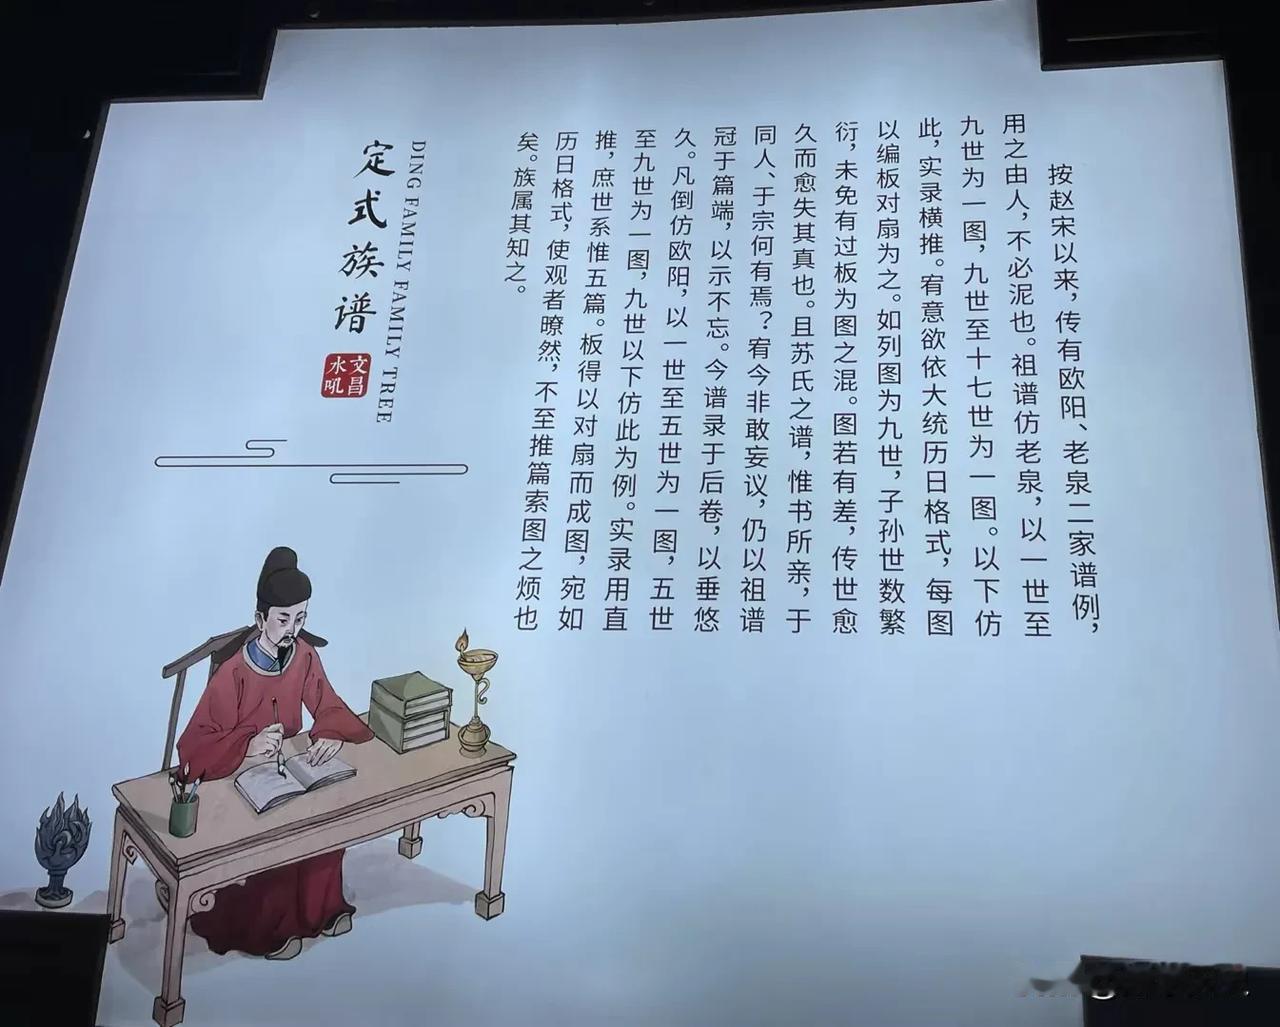 按赵宋以来，传有欧阳、老泉二家谱例，
用之由人，不必泥也。祖谱仿老泉，以一世至
九世为一图，九世至十七世为一图。以下仿
此，实录横推。宥意欲依大统历日格式，每图
以编板对扇为之。如列图为九世，子孙世数繁
衍，未免有过板为图之混。图若有差，传世愈
久而愈失其真也。且苏氏之谱，惟书所亲，于
同人、于宗何有焉？宥今非敢妄议，仍以祖谱
冠于篇端，以示不忘。今谱录于后卷，以垂悠
久。凡倒仿欧阳，以一世至五世为一图，五世
至九世为一图，九世以下仿此为例。实录用直
推，庶世系惟五篇。板得以对扇而成图，宛如
历日格式，使观者暸然，不至推篇索图之烦也
矣。族属其知之。
DING FAMILY FAMILY TREE
定式族谱
文昌
水吼